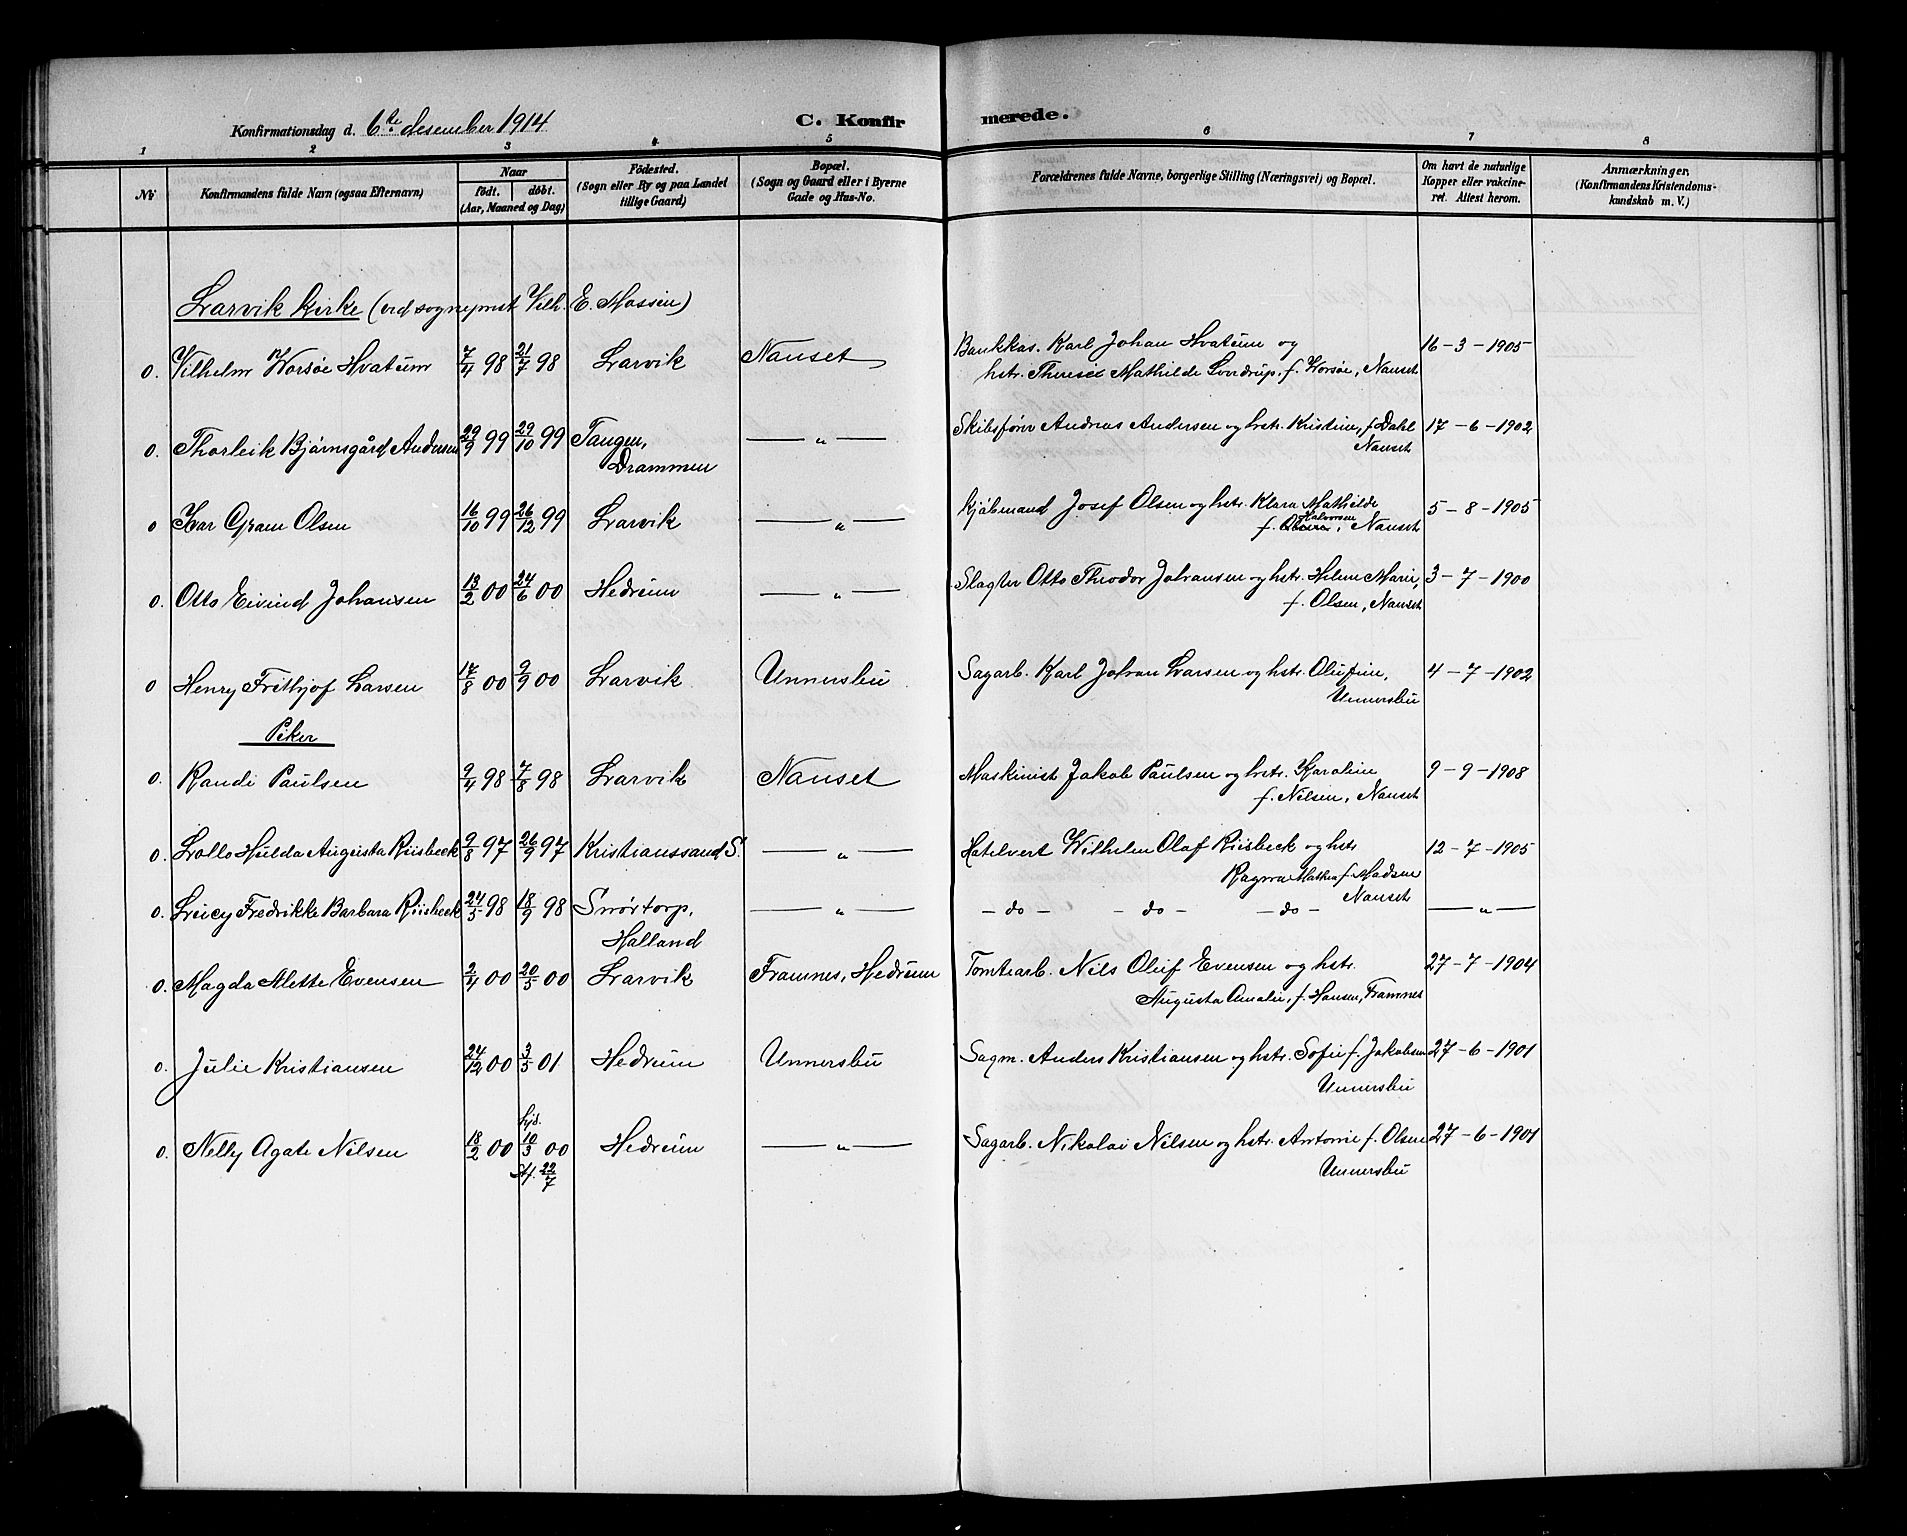 Konfirmationsdag d. 6te desember 1914 C. Konfirmerede.
1 2 3 4 5 6 7 8
No Konfirmandens fulde Navn (ogsaa Efternavn) Naar født. døbt. (Aar, Maaned og Dag) Fødested. (Sogn eller By og paa Landet tillige Gaard) Bopæl. (Sogn og Gaard eller i Byerne Gade og Hus-No. Forældrenes fulde Navne, borgerlige Stilling (Næringsvei) og Bopæl. Om havt de naturlige Kopper eller vakcineret. Attest herom. Anmærkninger, (Konfirmandens Kristendomskundskab m. V.)
Larvik kirke (ved sogneprest Vilh. E. Massen)
0. Vilhelm Worsøe Hvatum 7/4 98 21/7 98 Larvik Nanset Bankkas. Karl Johan Hvatum og 16-3-1905
hstr. Therese Mathilde Lovdrup, f. Worsøe, Nanset
0. Thorleik Bjørnsgård Andersen 29/9 99 29/10 99 Tangen, — „ — Skibsfører Andreas Andersen og hstr. Kristine, f. Dahl 17-6-1902
Drammen Nanset
0 Ivar Gram Olsen 16/10 99 26/12 99 Larvik — „ — Kjøbmand Josef Olsen og hstr. Klara Mathilde 5-8-1905
f. Halvorsen, Nanset
0. Otto Eivind Johansen 13/2 00 24/6 00 Hedrum — „ — Slagter Otto Theodor Johansen og hstr. Helene Marie, 3-7-1900
f. Olsen, Nanset
0 Henry Frithjof Larsen 17/8 00 9/9 00 Larvik Unnersbu Sagarb. Karl Johan Larsen og hstr. Olufine, 4-7-1902
Unnersbu
Piker
0. Randi Paulsen 9/4 98 7/8 98 Larvik Nanset Maskinist Jakob Paulsen og hstr. Karoline 9-9-1908
f. Nilsen, Nanset
0. Lollo Hulda Augusta Riisbeck 9/8 97 26/9 97 Kristianssand S. — „ — Hotelvert Wilhelm Olaf Riisbeck og hstr. 12-7-1905
Ragna Mathea f. Madsen
Nanset
0. Lucy Fredrikke Barbara Riisbeck 24/5 98 18/9 98 Snørtorp, — „ — - do - - do - - do - — „ —
Halland
0. Magda Alette Evensen 2/4 00 20/5 00 Larvik Framnes, Hedrum Tomtearb. Nils Oluf Evensen og hstr. 27-7-1904
Augusta Amalie, f. Hansen, Framnes
0. Julie Kristiansen 24/12 00 3/5 01 Hedrum Unnersbu Sagm. Anders Kristiansen og hstr. Sofie f. Jakobsen 27-6-1901
Unnersbu
hjd.
0. Nelly Agate Nilsen 18/2 00 10/3 00 Hedrum — „ — Sagarb. Nikolai Nilsen og hstr. Antonie f. Olsen 27-6-1901
St. 22/7 Unnersbu